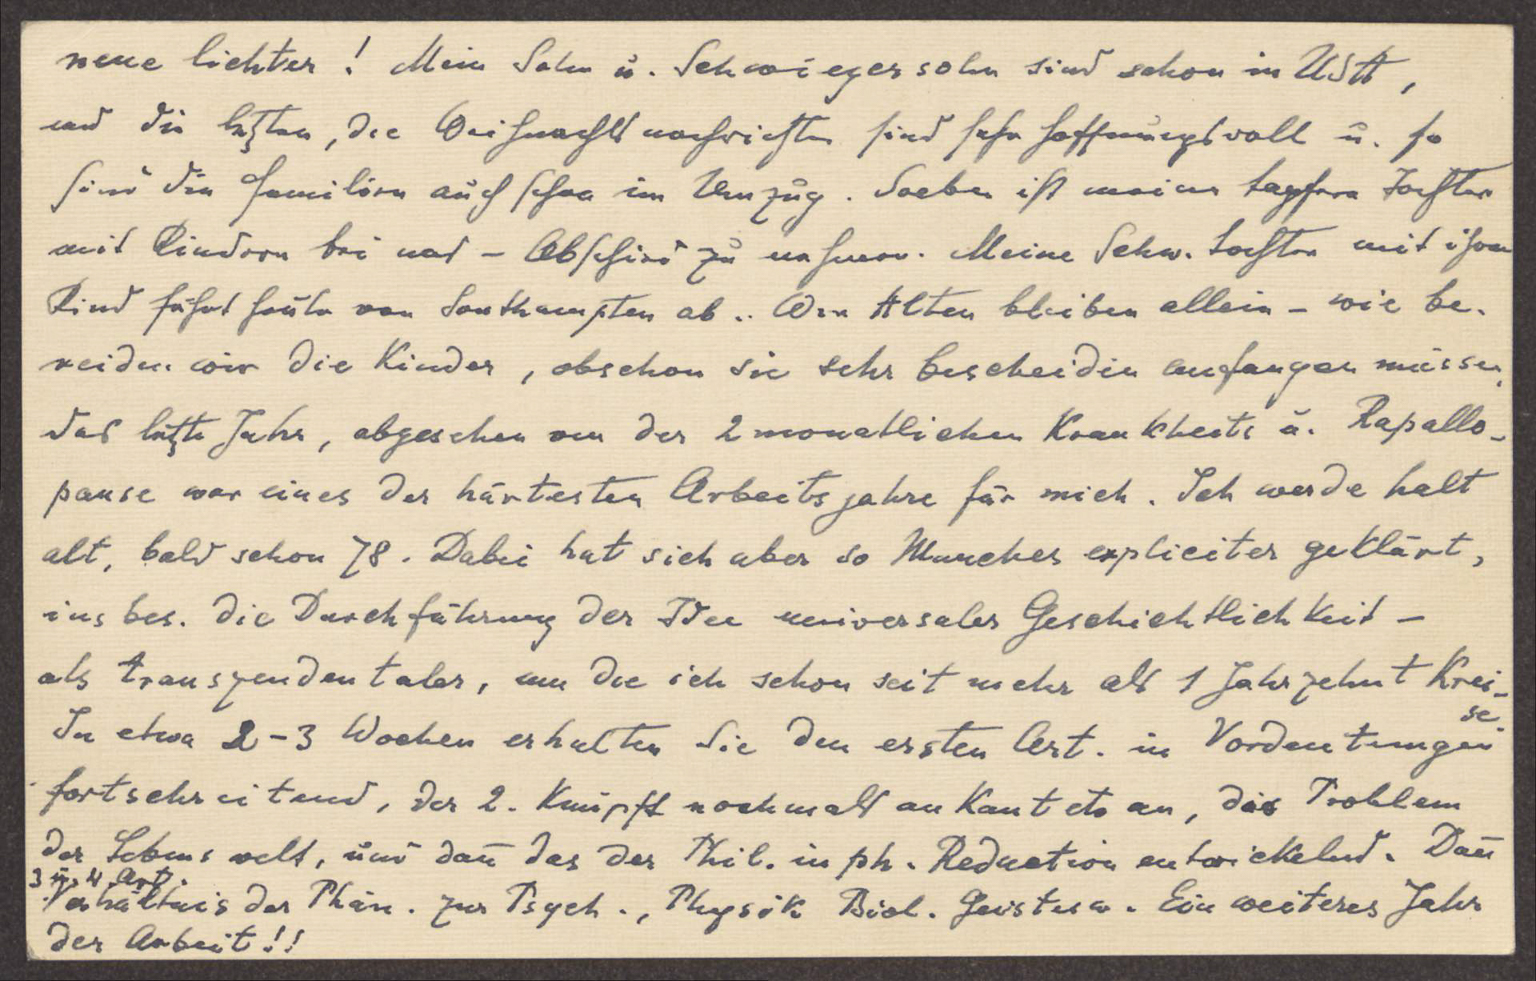 neue Lichter! Mein Sohn u. Schwiegersohn sind schon in USA,
und die letzten, die Weihnachtsnachrichten sind sehr hoffnungsvoll u. so
sind die Familien auch schon im Umzug. Soeben ist meine tapfere Tochter
mit Kindern bei uns – Abschied zu nehmen. Meine Schw. tochter mit ihrem
Kind fährt heute von Southampton ab. Wir Alten bleiben allein – wie be-
neiden wir die Kinder, obschon sie sehr bescheiden anfangen müssen.
Das letzte Jahr, abgesehen von der 2 monatlichen Krankheits u. Rapallo-
pause war eines der härtesten Arbeitsjahre für mich. Ich werde halt
alt, bald schon 78. Dabei hat sich aber so Mancher expliciter geklärt,
insbes. die Durchführung der Idee universaler Geschichtlichkeit –
als transzendentaler, um die ich schon seit mehr als 1 Jahrzehnt Krei-
se
In etwa 2–3 Wochen erhalten Sie den ersten Art. in Vordeutungen
fortschreitend, der 2. Knüpft nochmals an Kant etc an, das Problem
der Lebenswelt, und dañ das der Phil. in ph. Reduction entwickelnd. Dañ
3 u. 4 Art.
Verhältnis der Phän. zur Psych., Physik Biol. Geistesw. Ein weiteres Jahr
der Arbeit!!